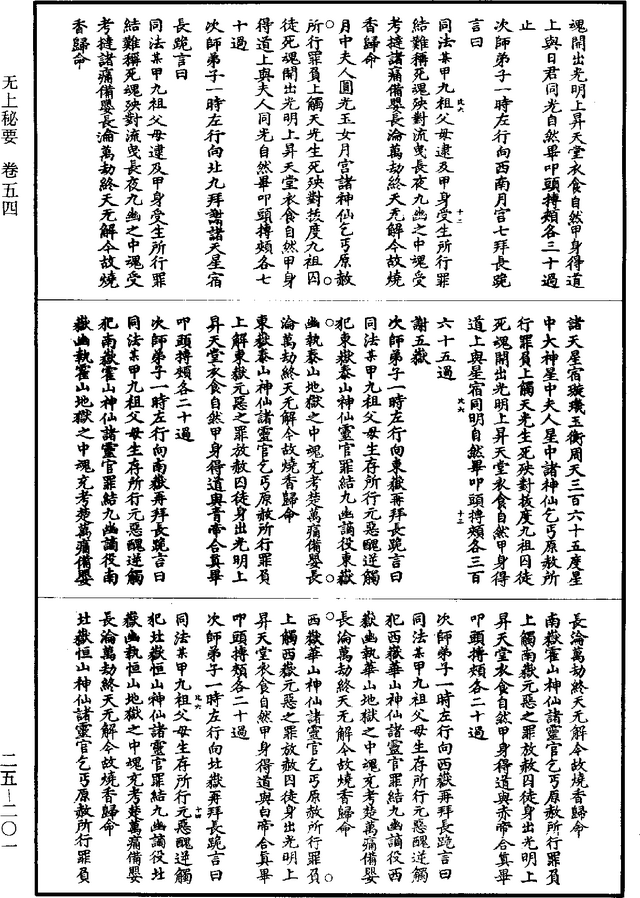 无上秘要 卷五四
二五-二〇一
魂開出光明上昇天堂衣食自然甲身得道
上與日君同光自然畢叩頭搏頰各三十過
止
次師弟子一時左行向西南月宫七拜長跪
言曰
同法某甲九祖父母逮及甲身受生所行罪
結難稱死魂殃對流曳長夜九幽之中魂受
考撻諸痛備嬰長淪萬劫終天无解今故燒
香歸命
月中夫人圓光玉女月宫諸神仙乞丐原赦
所行罪負上觸天光生死殃對拔度九祖囚
徒死魂開出光明上昇天堂衣食自然甲身
得道上與夫人同光自然畢叩頭搏頰各七
十過
次師弟子一時左行向北九拜謝諸天星宿
長跪言曰
同法某甲九祖父母逮及甲身受生所行罪
結難稱死魂殃對流曳長夜九幽之中魂受
考撻諸痛備嬰長淪萬劫終天无解今故燒
香歸命
諸天星宿璇璣玉衡周天三百六十五度星
中大神星中夫人星中諸神仙乞丐原赦所
行罪負上觸天光生死殃對拔度九祖囚徒
死魂開出光明上昇天堂衣食自然甲身得
道上與星宿同明自然畢叩頭搏頰各三百
六十五過
謝五嶽
次師弟子一時左行向東嶽再拜長跪言曰
同法某甲九祖父母生存所行元惡醜逆觸
犯東嶽泰山神仙靈官罪結九幽謫役東嶽
幽執泰山地獄之中魂充考楚萬痛備嬰長
淪萬劫終天无解今故燒香歸命
東嶽泰山神仙諸靈官乞丐原赦所行罪負
上解東嶽元惡之罪放赦囚徒身出光明上
昇天堂衣食自然甲身得道與青帝合真畢
叩頭搏頰各二十過
次師弟子一時左行向南嶽再拜長跪言曰
同法某甲九祖父母生存所行元惡醜逆觸
犯南嶽霍山神仙諸靈官罪結九幽謫役南
嶽幽執霍山地獄之中魂充考楚萬痛備嬰
長淪萬劫終天无解今故燒香歸命
南嶽霍山神仙諸靈官乞丐原赦所行罪負
上觸南嶽元惡之罪放赦囚徒身出光明上
昇天堂衣食自然甲身得道與赤帝合真畢
叩頭搏頰各二十過
次師弟子一時左行向西嶽再拜長跪言曰
同法某甲九祖父母生存所行元惡醜逆觸
犯西嶽華山神仙諸靈官罪結九幽謫役西
嶽幽執華山地獄之中魂充考楚萬痛備嬰
長淪萬劫終天无解今故燒香歸命
西嶽華山神仙諸靈官乞丐原赦所行罪負
上觸西嶽元惡之罪放赦囚徒身出光明上
昇天堂衣食自然甲身得道與白帝合真畢
叩頭搏頰各二十過
次師弟子一時左行向北嶽再拜長跪言曰
同法某甲九祖父母生存所行元惡醜逆觸
犯北嶽恒山神仙諸靈官罪結九幽謫役北
嶽幽執恒山地獄之中魂充考楚萬痛備嬰
長淪萬劫終天无解今故燒香歸命
北嶽恒山神仙諸靈官乞丐原赦所行罪負